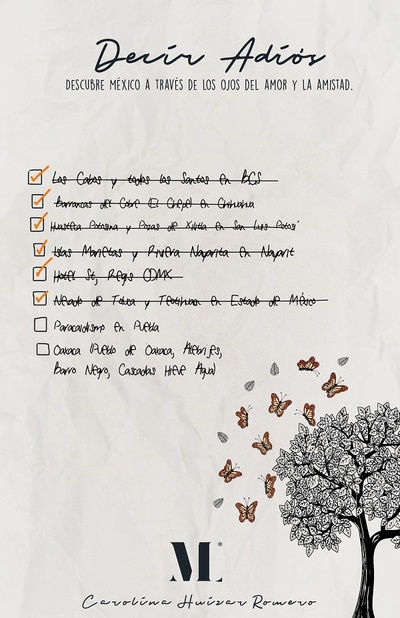 Decir Adiós
DESCUBRE MÉXICO A TRAVÉS DE LOS OJOS DEL AMOR Y LA AMISTAD.
Los Cabos y todos los Santos en BCS
Barrancas del Cobre (El Chepe) en Chihuahua
Huasteca Potosina y Pozas de Xilitla en San Luis Potosí
Islas Marietas y Riviera Nayarita en Nayarit
Hotel St, Regis CDMX
Nevado de Toluca y Teotihuacan en Estado de México
Paracaidismo en Puebla
Oaxaca (Pueblo de Oaxaca, Alebrijes,
Barro Negro, Cascadas Hierve Agua)
ML®
Carolina Huízar Romero